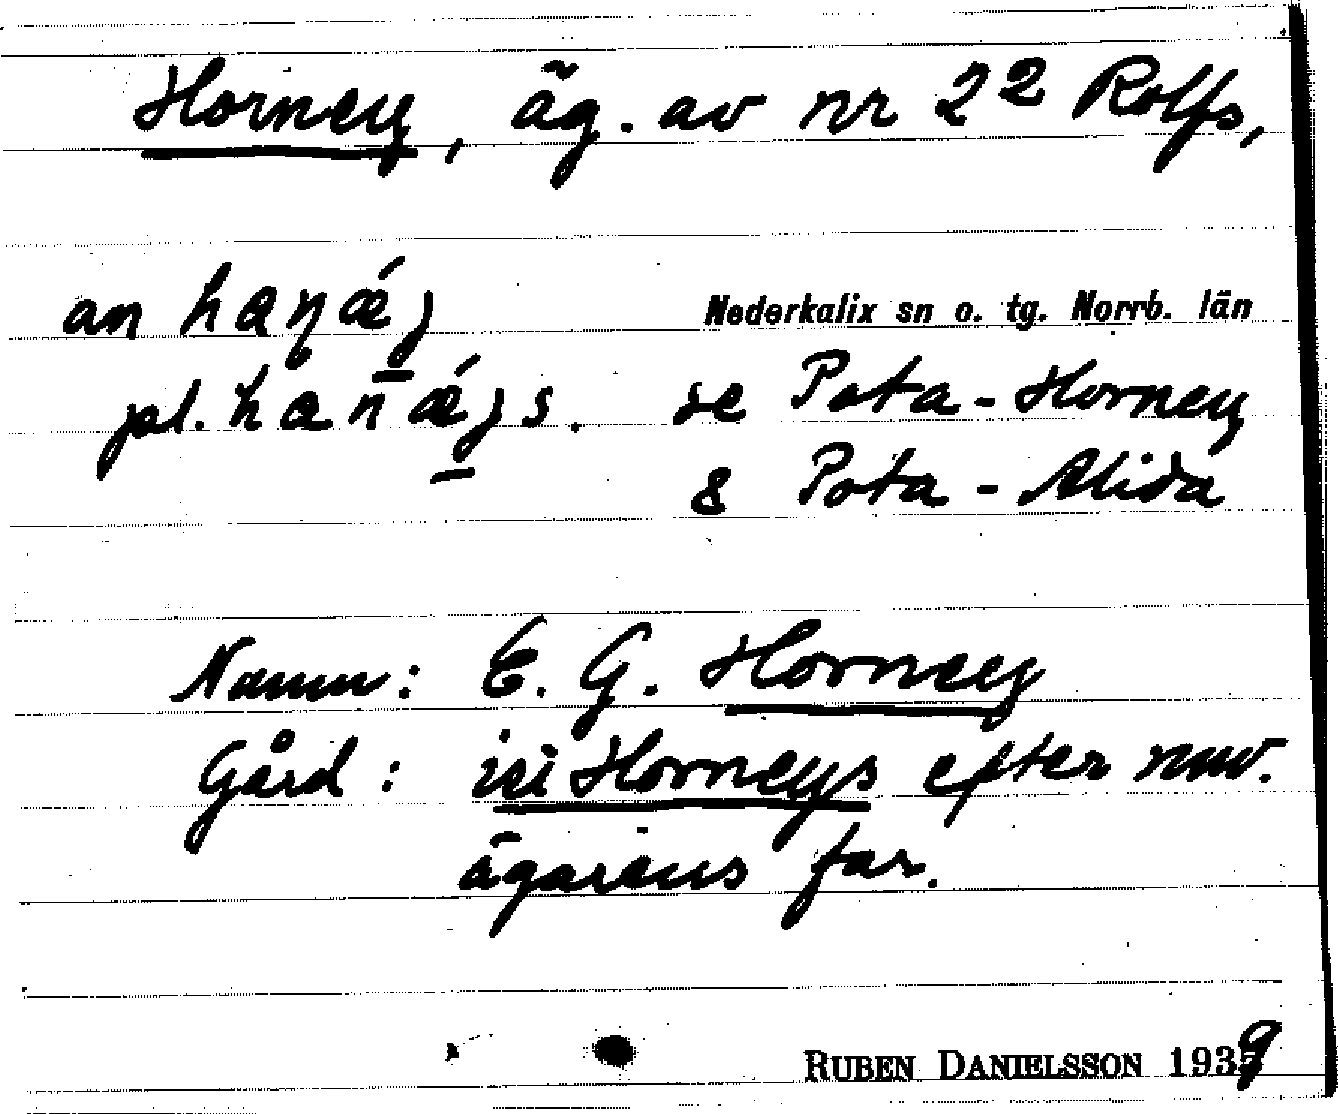 Horney, äg. av nr 2² Rolfs,
an haŋǽj
Nederkalix sn o. tg. Norrb. län
pl. hanǽjs. se Pota-Horney
& Pota-Alida
Namn: E. G. Horney
Gård: Horneys efter nuv.
ägarens far.
RUBEN DANIELSSON 1939